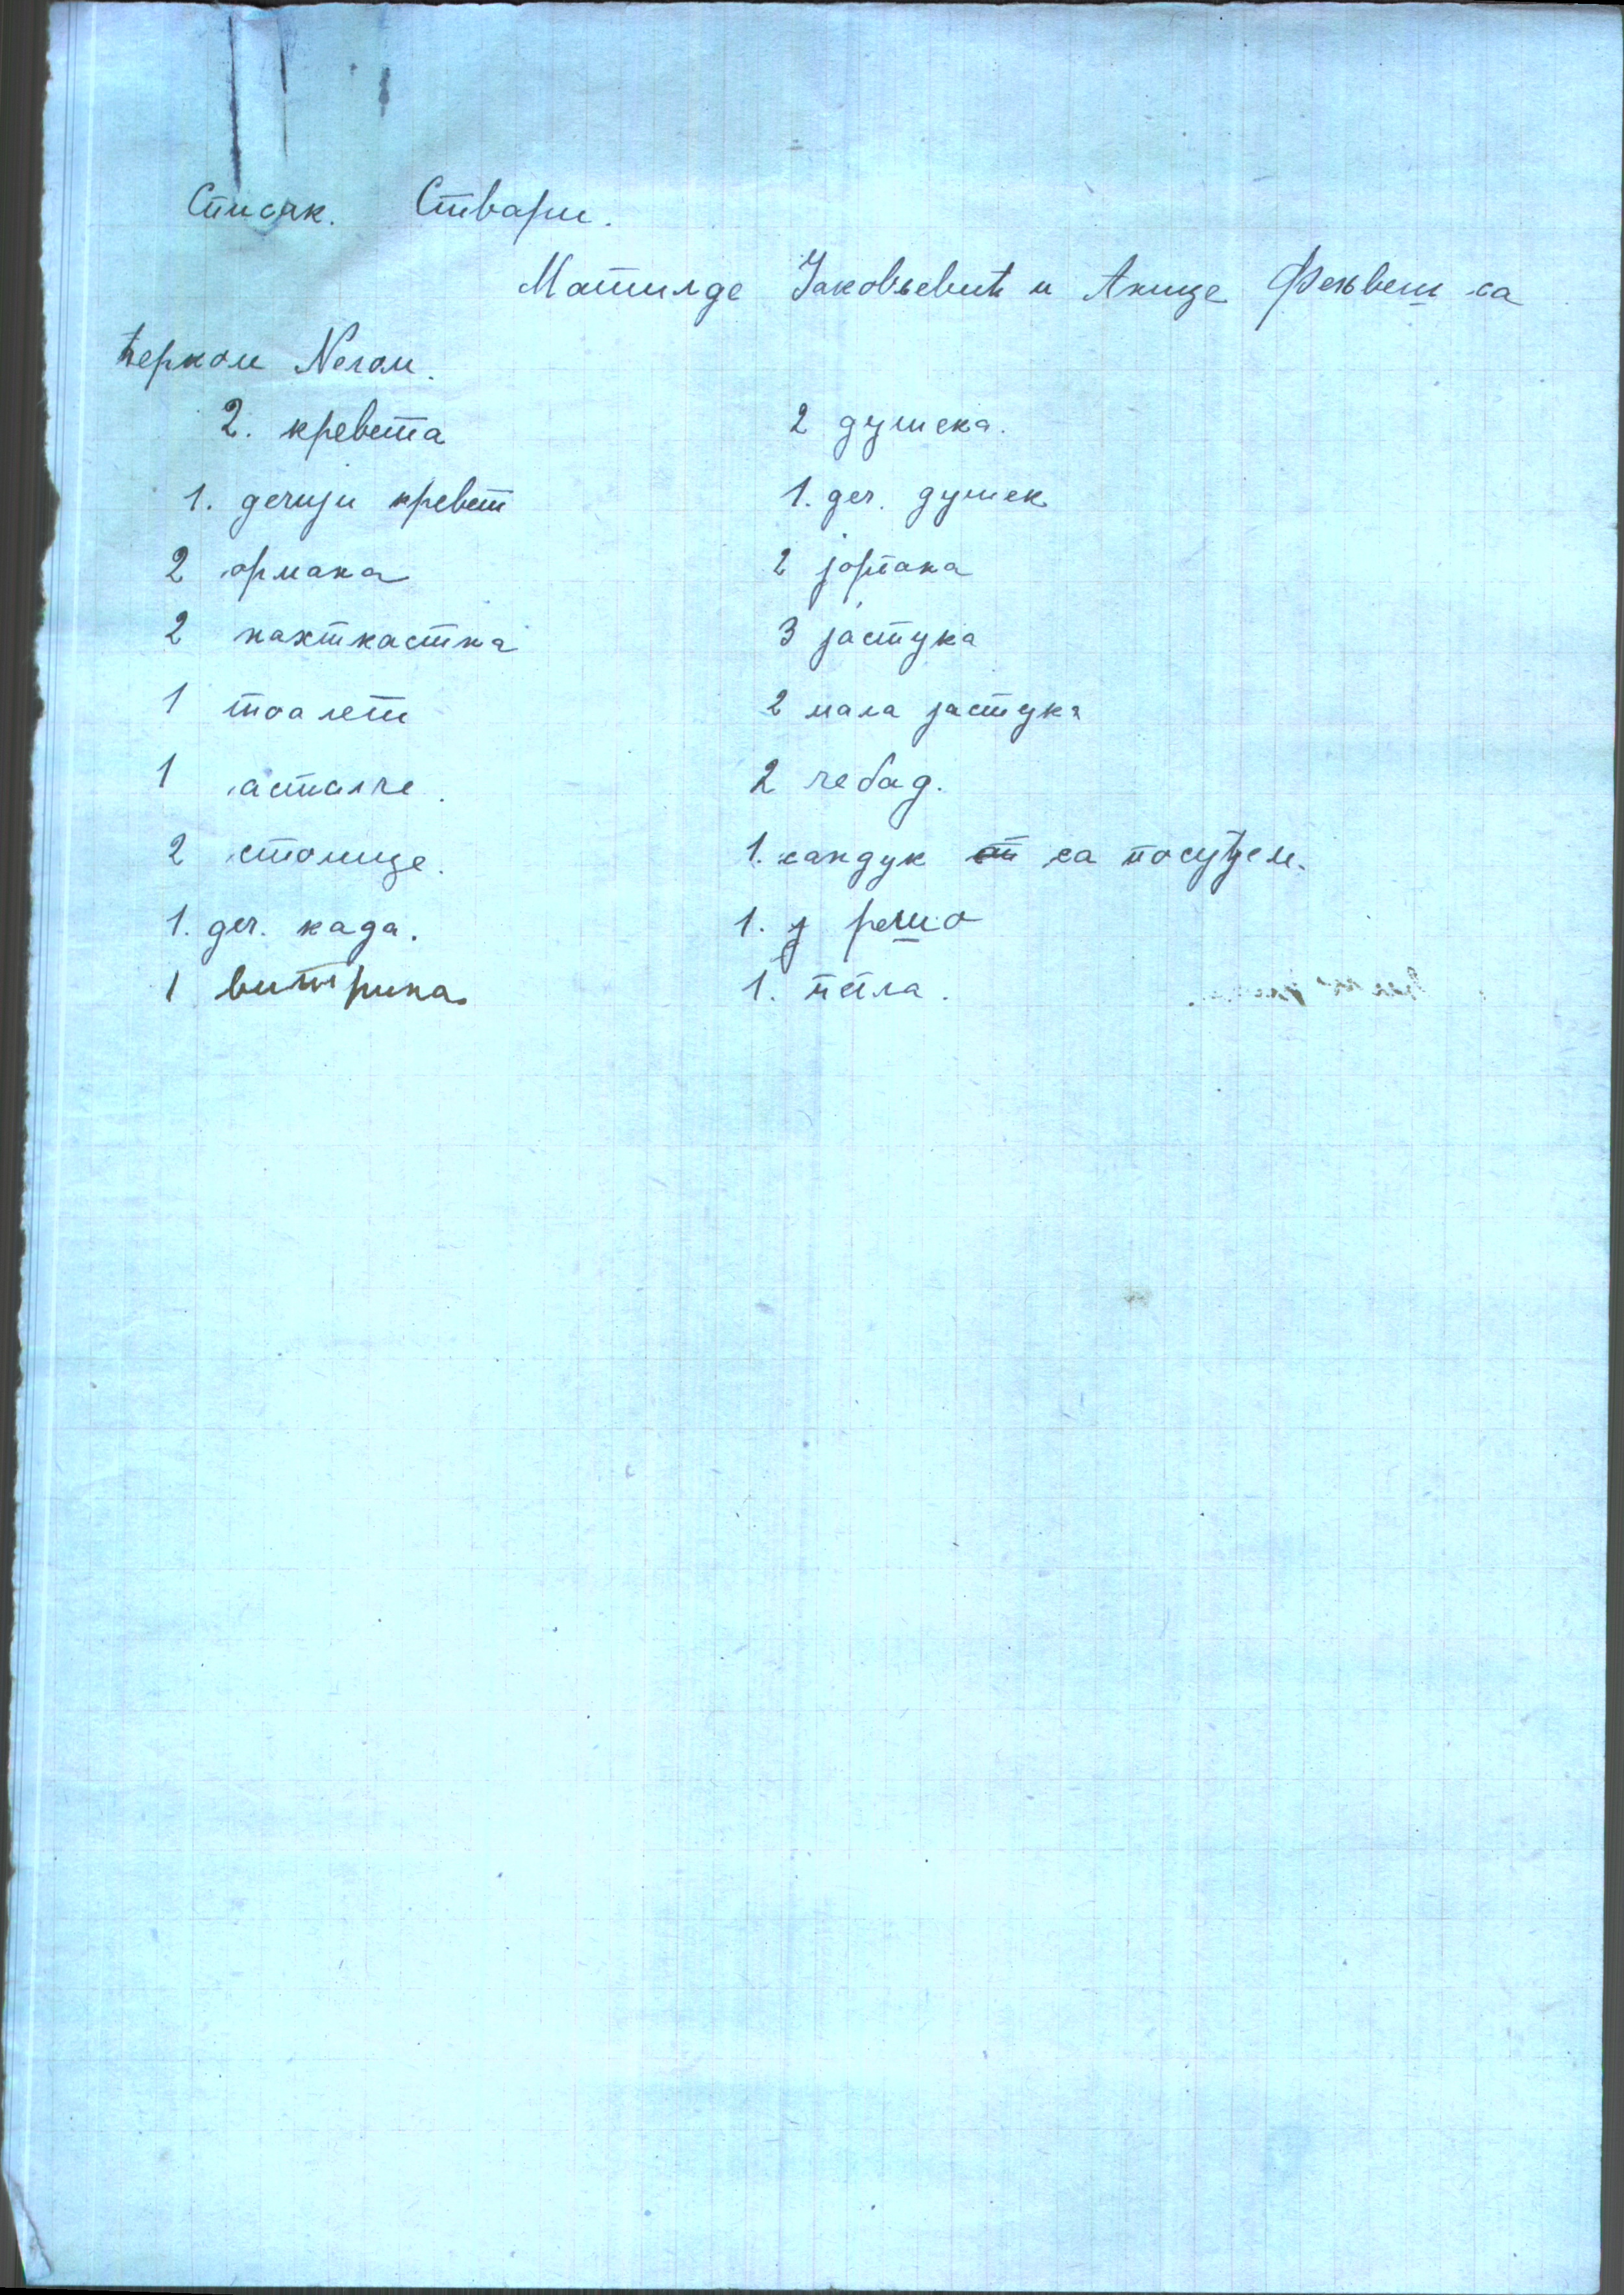 Списак. Ствари.
Матилде Јаковљевић и Анице Фењвеш са
ћерком Nегом.
2. кревета
1. дечији кревет
2 ормана
2 нахткастна
1 тоалет
1 асталче.
2 столице.
1. деч. када.
1 витрина.
2 душека.
1. деч. душек
2 јоргана
3 јастука
2 мала јастука
2 ћебад.
1. сандук са посуђем.
1. решо
1. пегла.